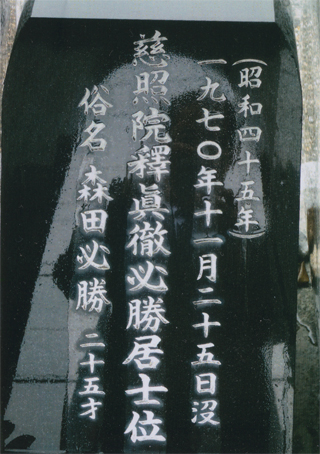 (昭和四十五年)
一九七〇年十一月二十五日没
慈照院釋眞徹必勝居士位
俗名 森田必勝 二十五才